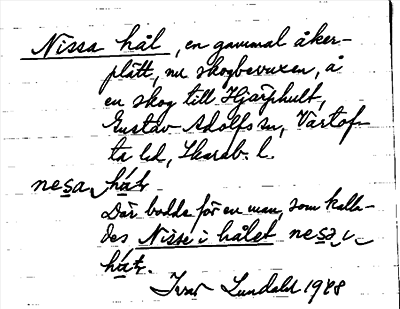 Nissa hål, en gammal åker-
plätt, nu skogbevuxen, å
en skog till Hjärphult,
Gustav Adolfs sn, Vartof-
ta hd, Skarab. l.
nesa håtr
Där bodde för en man, som kalla-
des Nisse i hålet nesa i
håtr.
Ivar Lundahl 1948